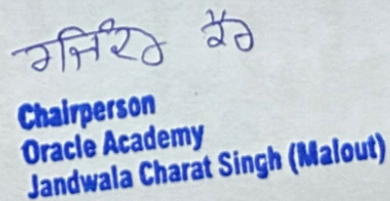 ਰਜਿੰਦਰ ਕੌਰ
Chairperson
Oracle Academy
Jandwala Charat Singh (Malout)